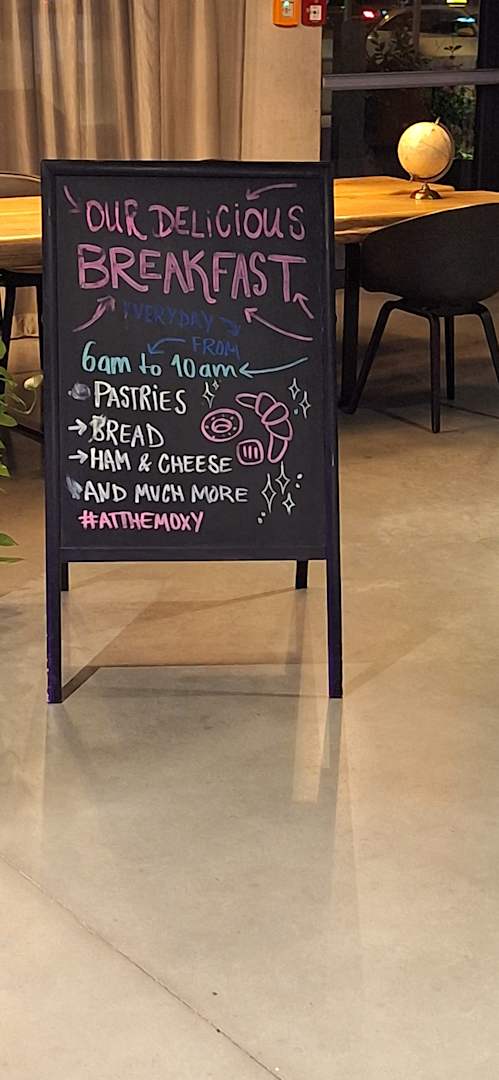 OUR DELiCiOUS
BREAKFAST
EVERYDAY
FROM
6am to 10am
PASTRiES
BREAD
HAM & CHEESE
AND MUCH MORE
#ATTHEMOXY